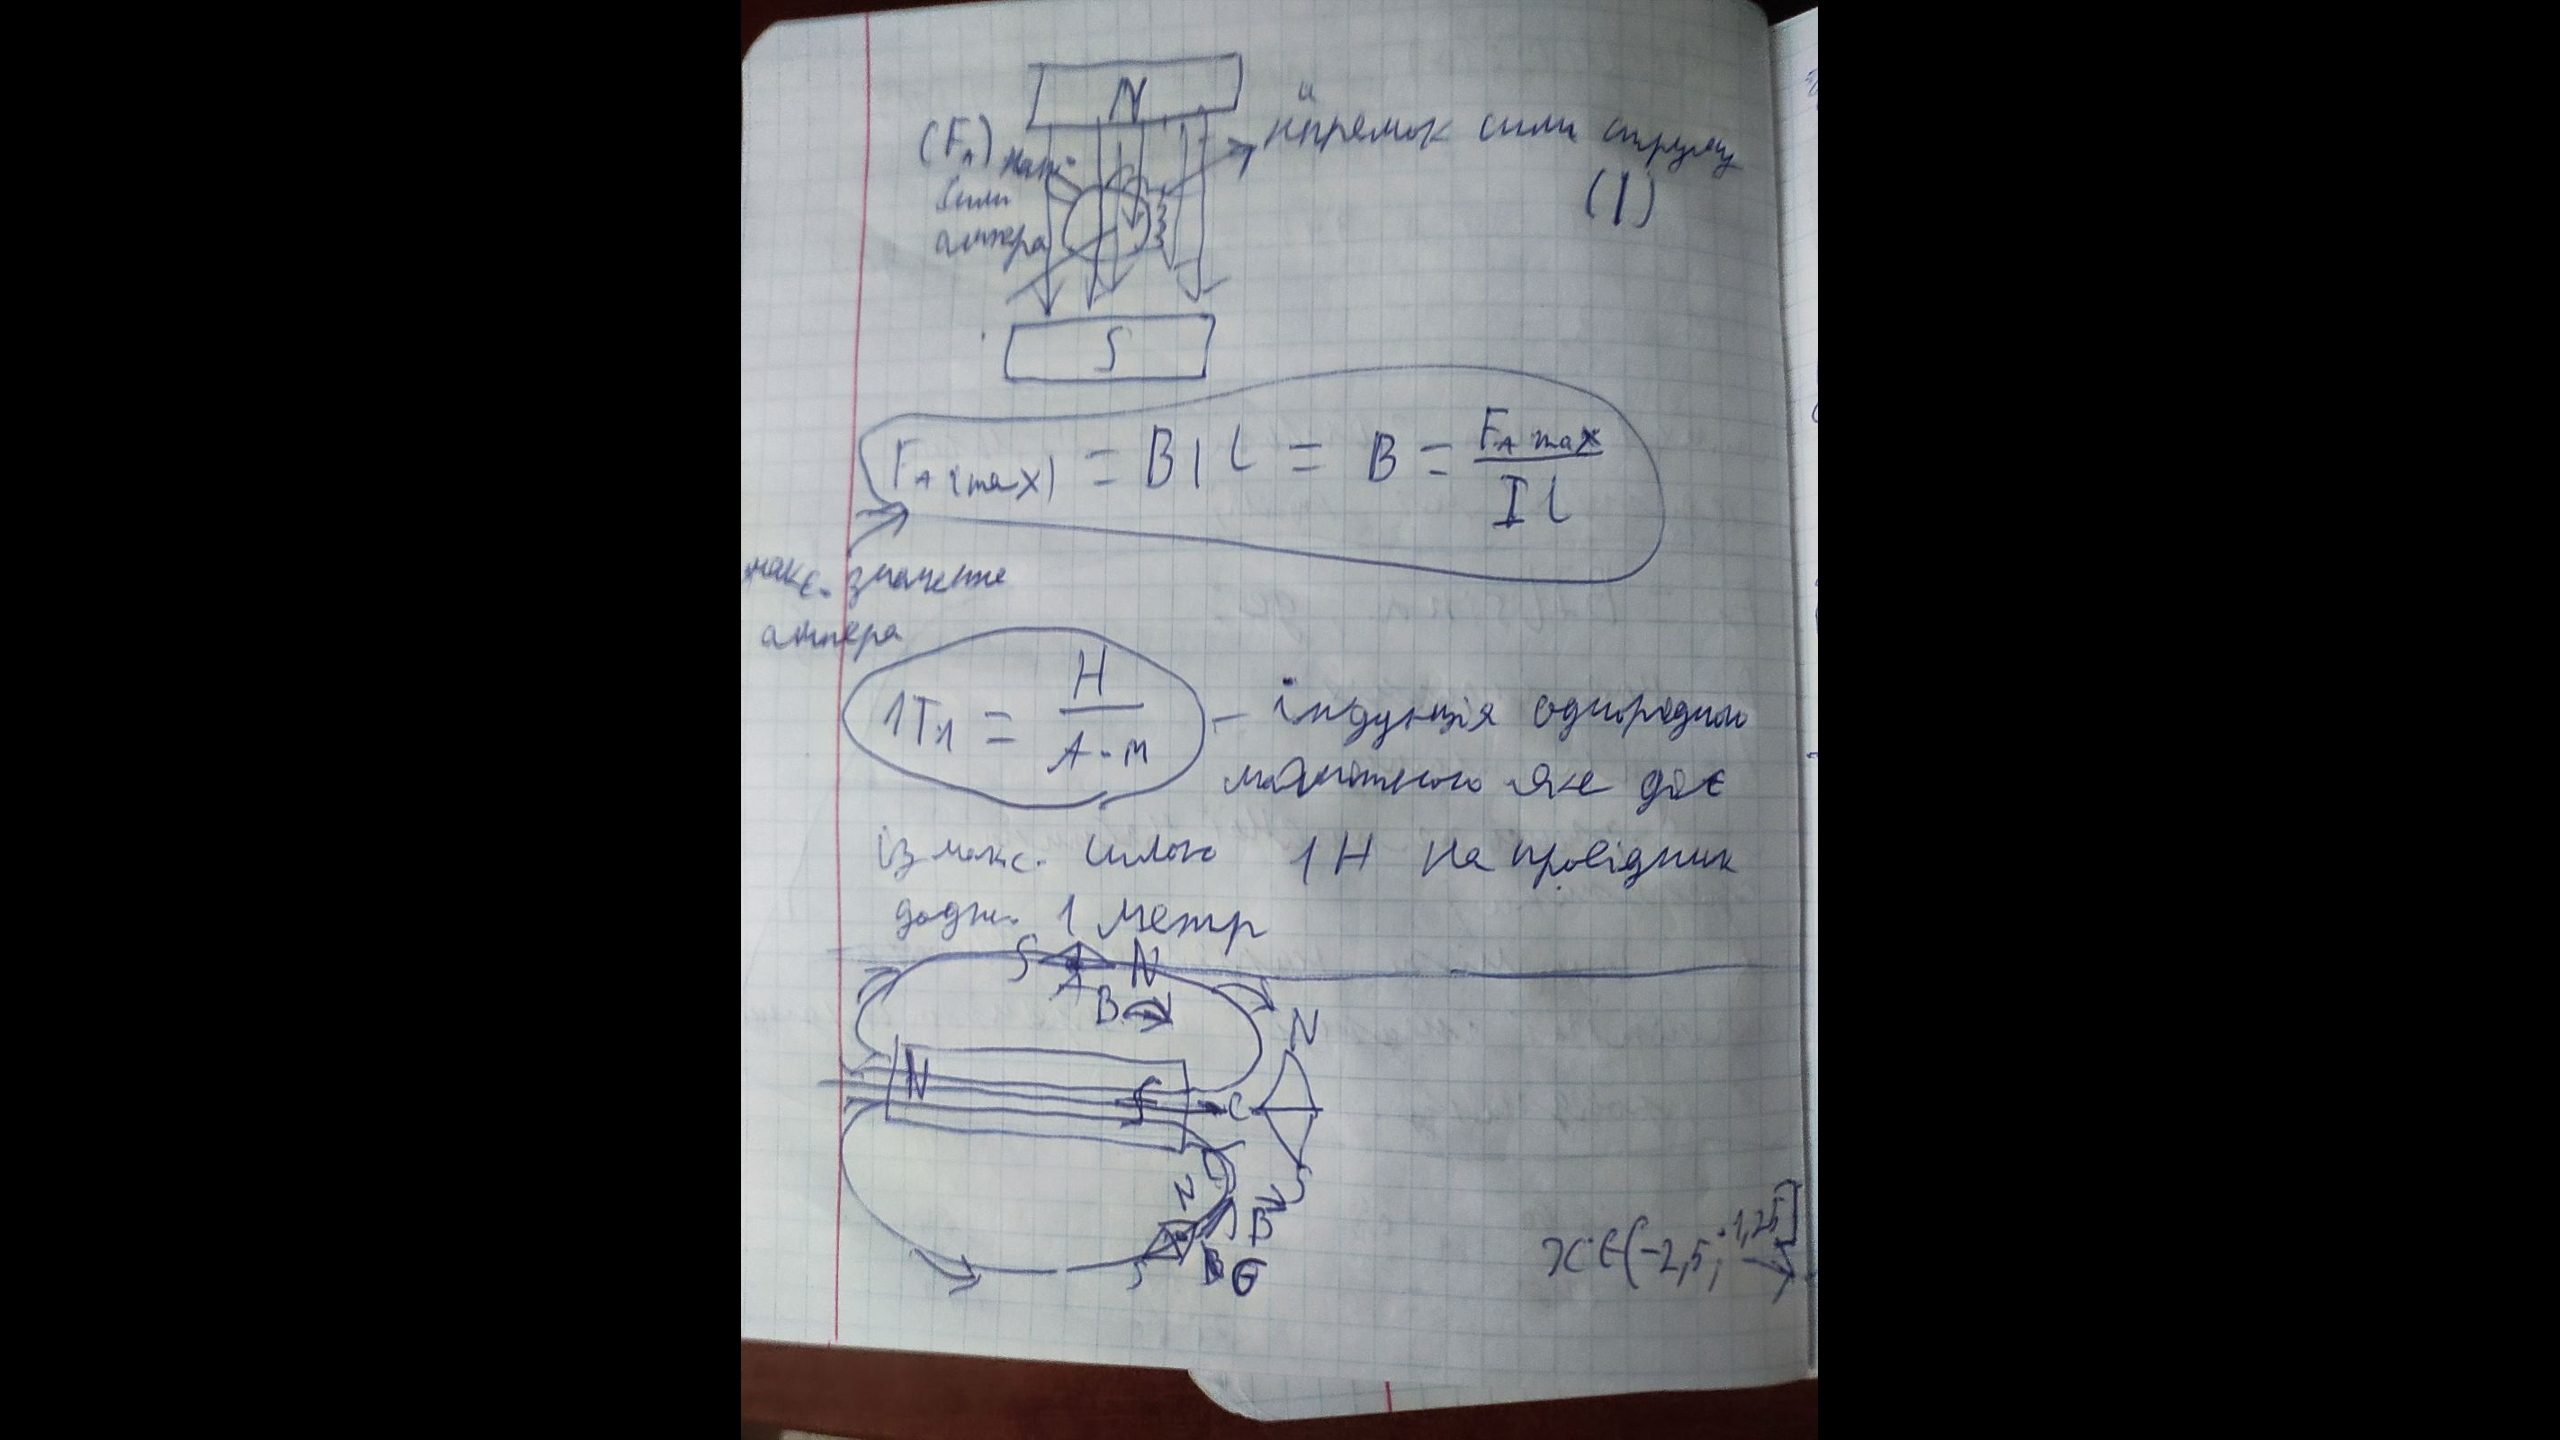 N
(Fₐ) напр.
сили
ампера
напрямок сили струму
(I)
S
F A (max) = B I l = B = F A max / I l
макс. значення
ампера
1Тл = Н / А·м – індукція однорідного
магнітного яке діє
із макс. силою 1 Н на провідник
довж. 1 метр
S N
A
B
N
N S C
S
N
B
S В б
x ∈ (-2,5; -1,25]